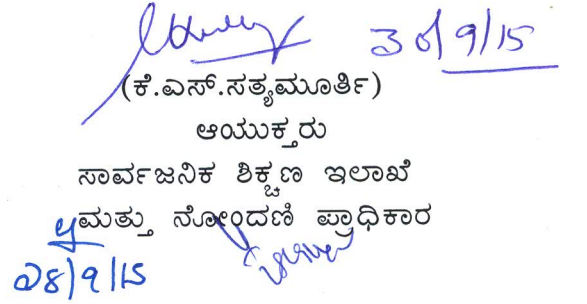 30/9/15
(ಕೆ.ಎಸ್.ಸತ್ಯಮೂರ್ತಿ)
ಆಯುಕ್ತರು
ಸಾರ್ವಜನಿಕ ಶಿಕ್ಷಣ ಇಲಾಖೆ
ಮತ್ತು ನೋಂದಣಿ ಪ್ರಾಧಿಕಾರ
28/9/15